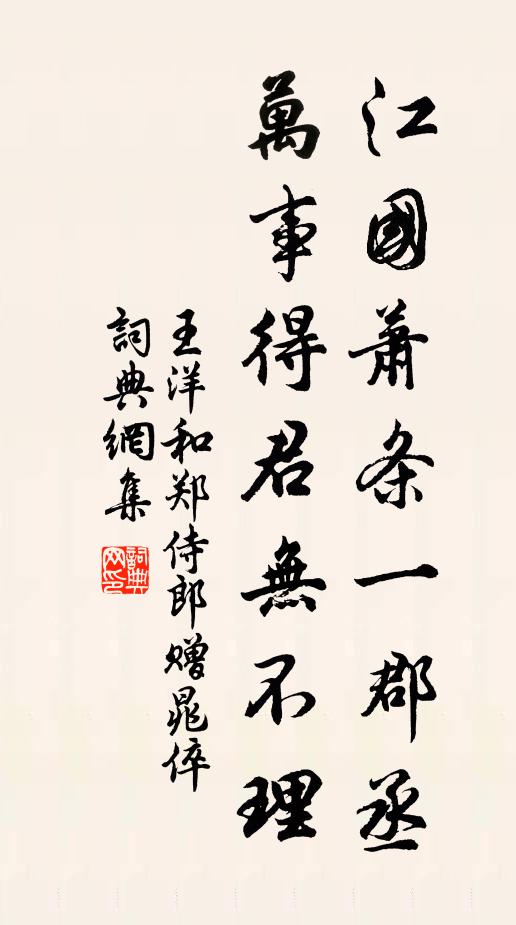 江國蕭条一郡丞
萬事得君無不理
王洋和郑侍郎赠晁倅
詞典網集
詞典网印